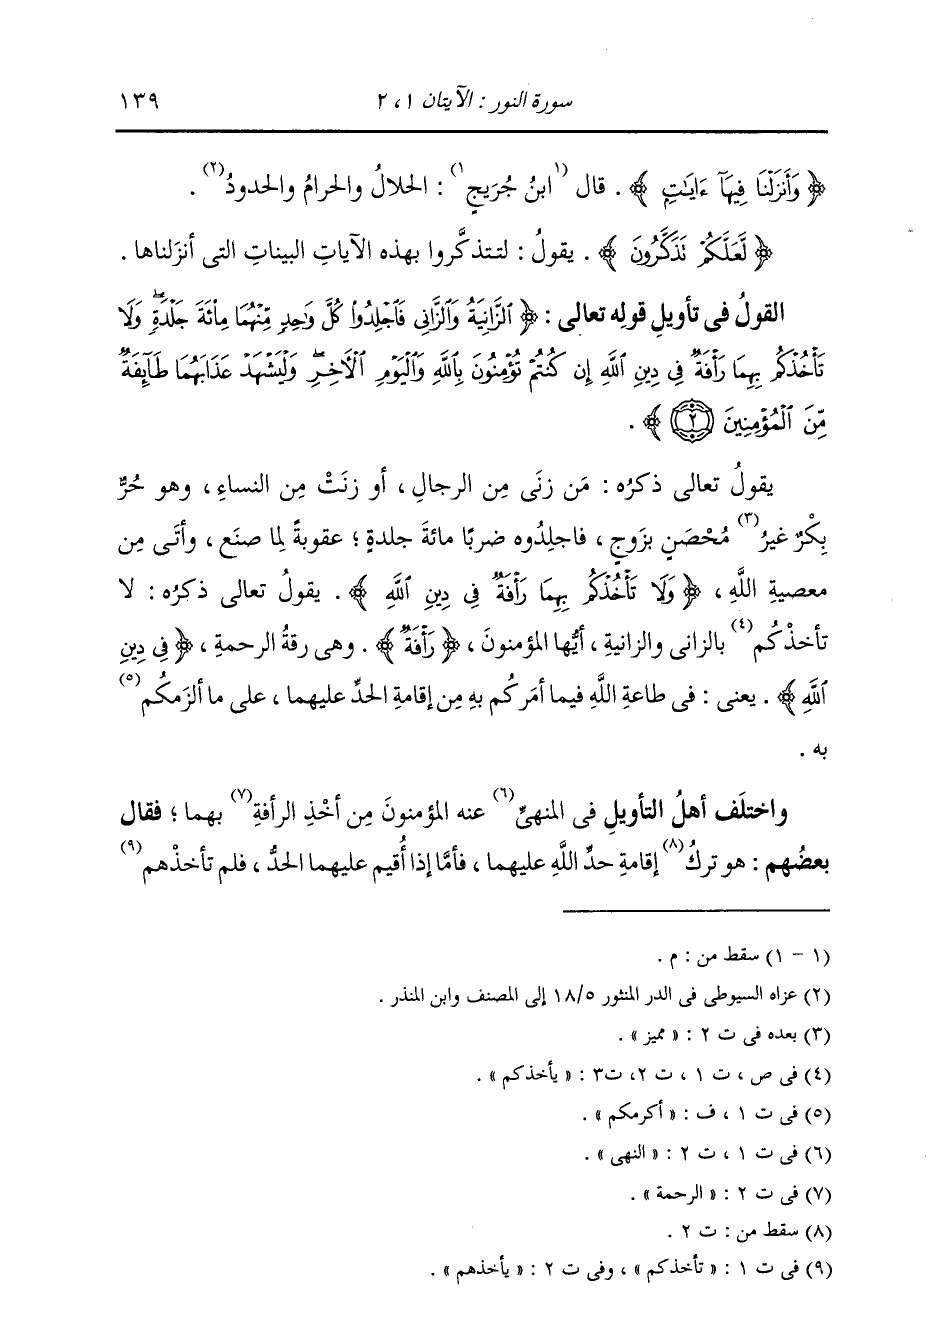 سورة النور : الآيتان ١ ، ٢ ١٣٩
﴿ وَأَنزَلْنَا فِيهَآ ءَايَٰتٍ ﴾ . قال (١ ابنُ جُرَيجٍ ١) : الحلالُ والحرامُ والحدودُ (٢) .
﴿ لَّعَلَّكُمْ نَذَكَّرُونَ ﴾ . يقولُ : لتتذكَّروا بهذه الآياتِ البيناتِ التى أنزَلناها .
القولُ فى تأويلِ قولِه تعالى : ﴿ ٱلزَّانِيَةُ وَٱلزَّانِى فَٱجْلِدُوا۟ كُلَّ وَٰحِدٍ مِّنْهُمَا مِا۟ئَةَ جَلْدَةٍۖ وَلَا
تَأْخُذْكُم بِهِمَا رَأْفَةٌ فِى دِينِ ٱللَّهِ إِن كُنتُمْ تُؤْمِنُونَ بِٱللَّهِ وَٱلْيَوْمِ ٱلْأَخِرِۖ وَلْيَشْهَدْ عَذَابَهُمَا طَآئِفَةٌ
مِّنَ ٱلْمُؤْمِنِينَ ٢ ﴾ .
يقولُ تعالى ذكرُه : مَن زنَى مِن الرجالِ ، أو زنَتْ مِن النساءِ ، وهو حُرٌّ
بِكْرٌ غيرُ (٣) مُحْصَنٍ بزَوجٍ ، فاجلِدُوه ضربًا مائةَ جلدةٍ ؛ عقوبةً لِما صنَع ، وأتَى مِن
معصيةِ اللَّهِ ، ﴿ وَلَا تَأْخُذْكُم بِهِمَا رَأْفَةٌ فِى دِينِ ٱللَّهِ ﴾ . يقولُ تعالى ذكرُه : لا
تأخذْكُم (٤) بالزانى والزانيةِ ، أيُّها المؤمنونَ ، ﴿ رَأْفَةٌ ﴾ . وهى رقةُ الرحمةِ ، ﴿ فِى دِينِ
ٱللَّهِ ﴾ . يعنى : فى طاعةِ اللَّهِ فيما أمَركُم بهِ مِن إقامةِ الحدِّ عليهما ، على ما ألزَمكُم (٥)
به .
واختلَف أهلُ التأويلِ فى المنهىِّ (٦) عنه المؤمنونَ مِن أخْذِ الرأفةِ (٧) بهما ؛ فقال
بعضُهم : هو تركُ (٨) إقامةِ حدِّ اللَّهِ عليهما ، فأمَّا إذا أُقيم عليهما الحدُّ ، فلم تأخذْهم (٩)
(١ - ١) سقط من : م .
(٢) عزاه السيوطى فى الدر المنثور ١٨/٥ إلى المصنف وابن المنذر .
(٣) بعده فى ت ٢ : « مميز » .
(٤) فى ص ، ت ١ ، ت ٢، ت٣ : « يأخذكم » .
(٥) فى ت ١ ، ف : « أكرمكم » .
(٦) فى ت ١ ، ت ٢ : « النهى » .
(٧) فى ت ٢ : « الرحمة » .
(٨) سقط من : ت ٢ .
(٩) فى ت ١ : « تأخذكم » ، وفى ت ٢ : « يأخذهم » .